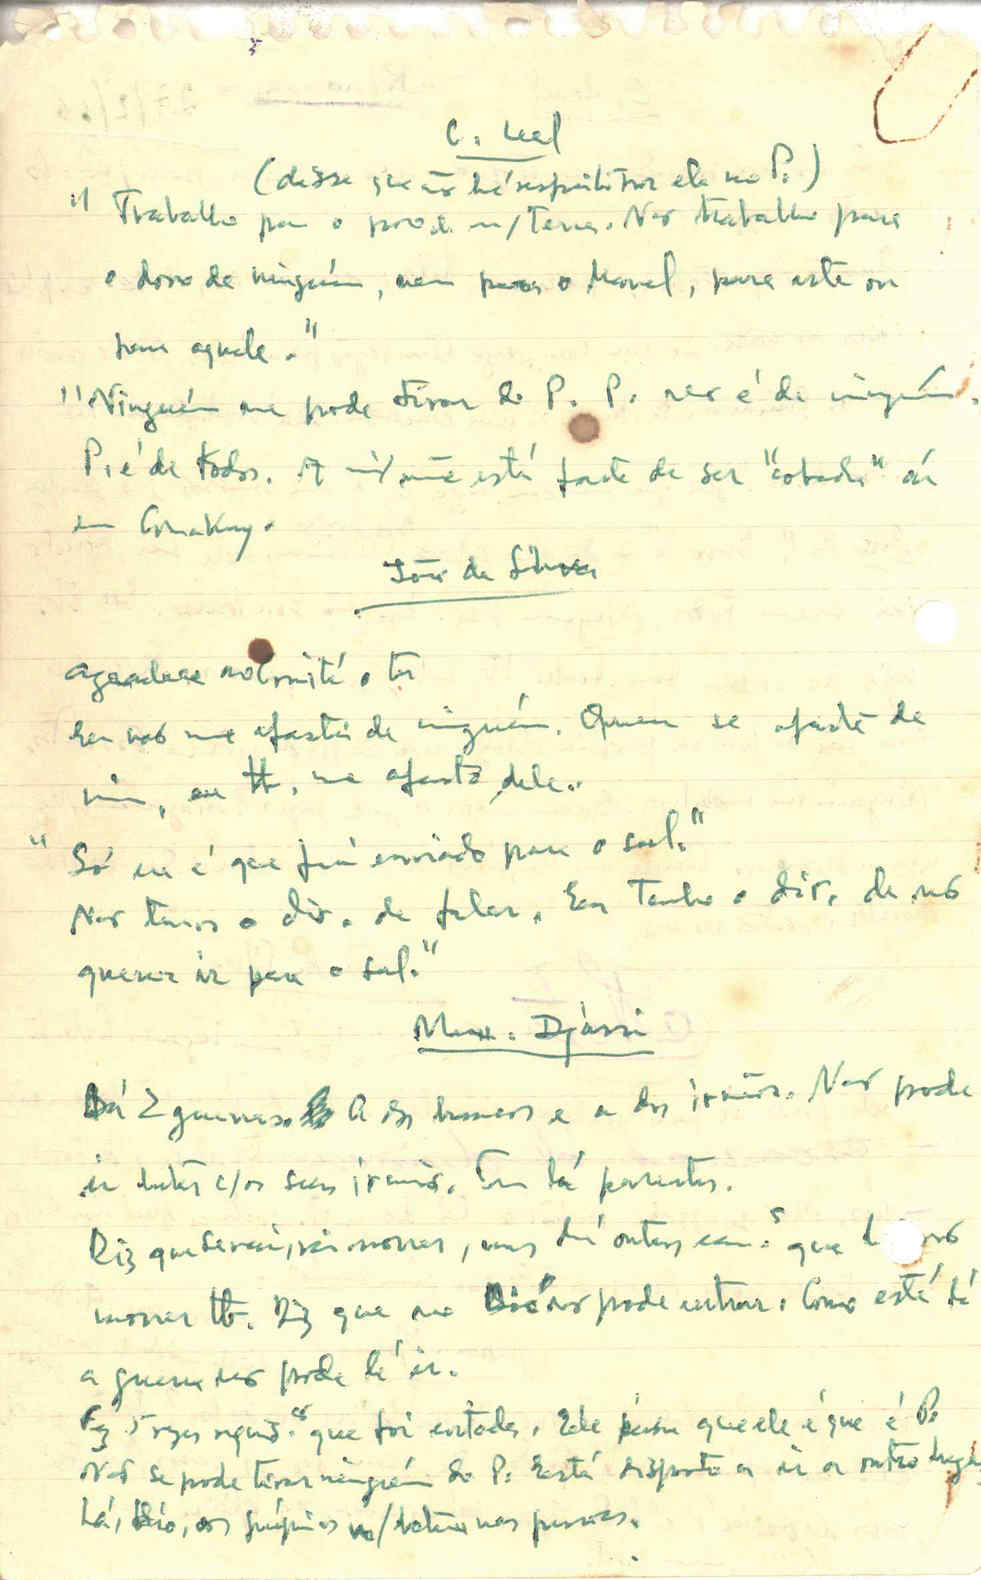 C. Leal
(disse que não há respeito por ele no P.)
"Trabalho para o povo da n/Terra. Não trabalho para
o dono de ninguém, nem para o Manel, para este ou
para aquele."
"Ninguém me pode tirar do P. P. não é de ninguém.
P. é de todos. A m/ mãe está farta de ser "cobada" aí
em Conakry.
João da Silva
agradece ao Comité o ter
Eu não me afastei de ninguém. Quem se afasta de
mim, eu tb. me afasto dele.
"Só eu é que fui enviado para o sul."
Nós temos o dir. de falar. Eu tenho o dir. de não
querer ir para o sul."
Mam. Djassi
Há 2 guerras. A dos brancos e a dos irmãos. Não pode
ir lutar c/os seus irmãos. Tem lá parentes.
Diz que se vai, vai morrer, mas há outros cam.s que não
morrer tb. Diz que no não pode entrar. Como está lá
a guerra não pode lá ir.
Fez 5 que foi cortada. Ele pensa que ele é que é P.
Não se pode tirar ninguém do P. Está disposto a ir a outro lugar.
Lá, os próprios nas pessoas.